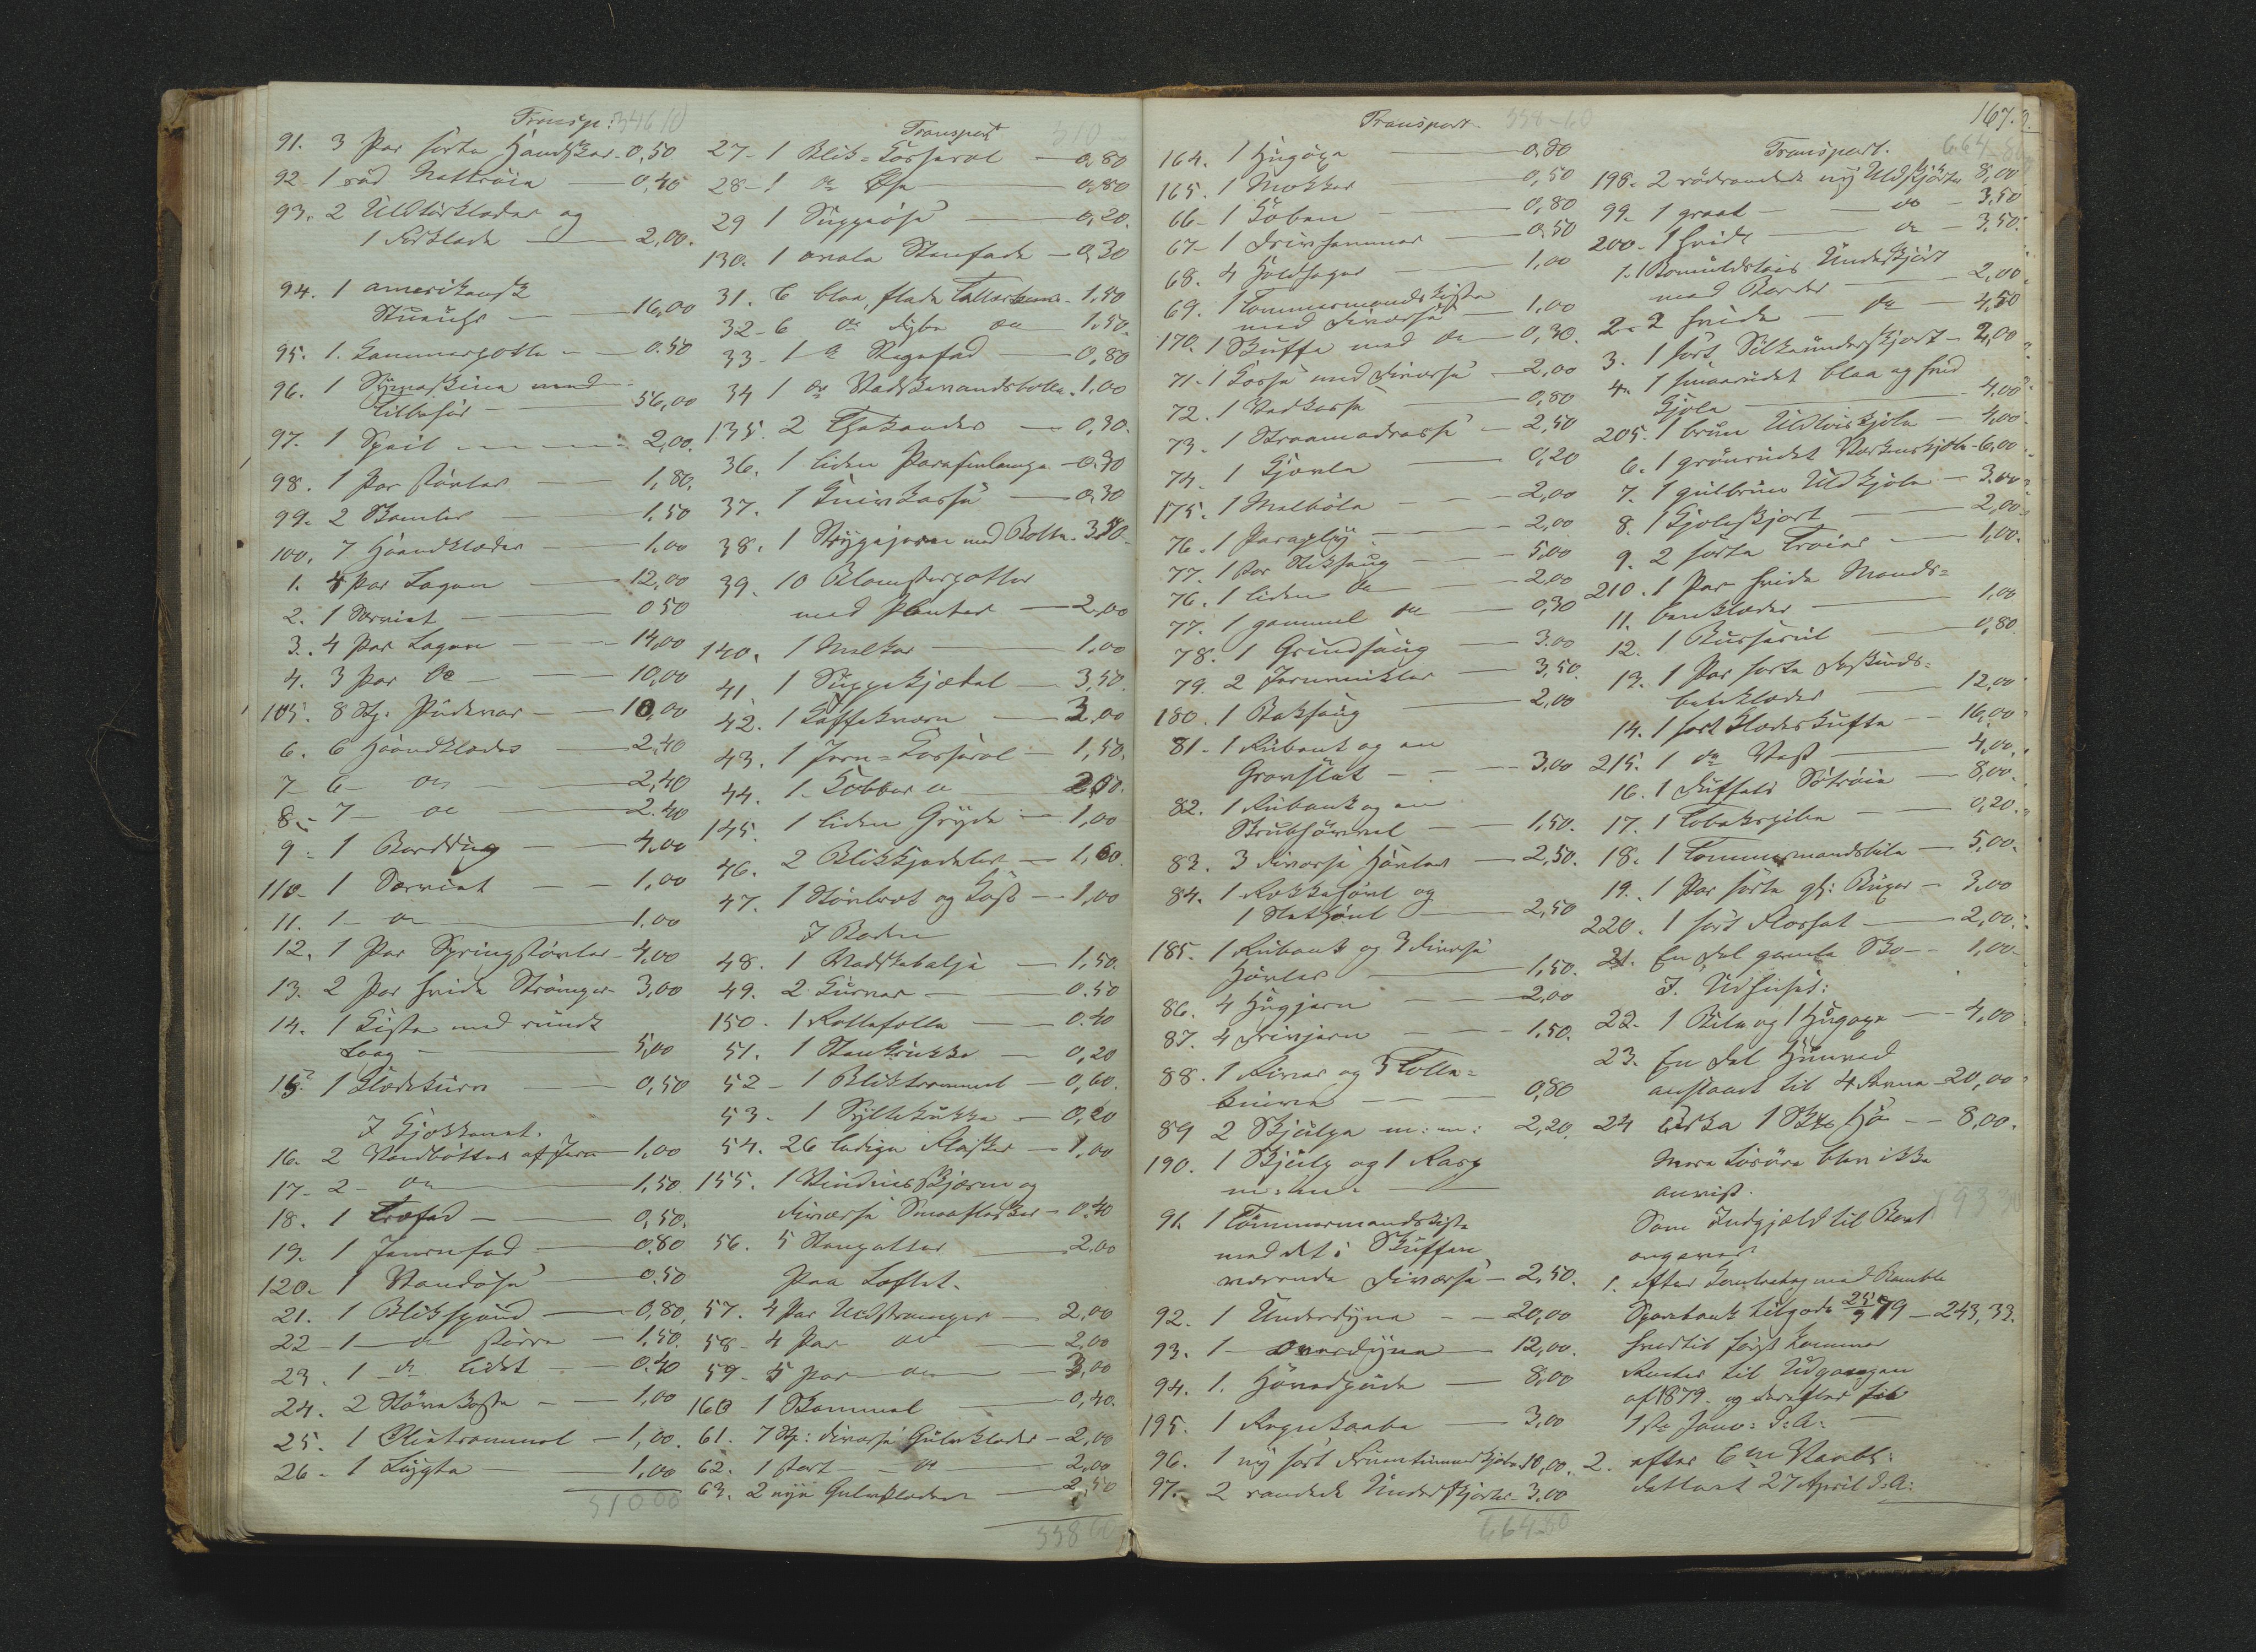 Transp: 346 10
91. 3 Par sorte Handsker - 0,50
92 1 rød Nattrøie — 0,40
93. 2 Uldtørklæder og
1 Forklæde — 2,00.
94. 1 amerikansk
Stueuhr — 16,00
95. 1. Kammerpotte — 0.50
96. 1 Symaskine med
Tilbehør — 56,00
97. 1 Speil — 2,00.
98. 1 Par Støvler — 1,80.
99. 2 Skamler — 1.50
100. 7 Haandklæder — 1.00
1. 4 Par Lagen — 12,00
2. 1 Serviet — 0 50
3. 4 Par Lagen — 14,00
4. 3 Par do — 10,00
105. 8 Stk. Pudevar — 10,00
6. 6 Haandklæder — 2,40
7 - 6 - do — 2,40
8 - 7 - do — 2.40
9 - 1 Borddug — 4,00
110. 1 Serviet — 1,00
11. 1 - do — 1,00
12. 1 Par Springstøvler - 4,00
13. 2 Par hvide Strømper - 3,00
14. 1 Kiste med rundt
Laag — 5,00
15. 1 Klædekurv — 0,50
I Kjøkkenet.
16. 2 Vandbøtter af Jern — 1,00
17 - 2 - do — 1,50
18. 1 Træfad — 0,50.
19. 1 Jernfad — 0,80
120. 1 Vandøse — 0.50
21. 1 Blikspand — 0,80,
22 - 1 - do større — 1,50.
23. 1 do lidet — 0.40
24. 2 Støvekoste — 1,00
25. 1 Bliktrommel — 1,00.
26 - 1 Lygte — 1,00
510 00
Transport 510
27 - 1 Blik-Kasserol — 0,80
28 - 1 do Øse — 0,80
29 1 Suppeøse — 0,20.
130. 1 ovale Stenfade — 0,30
31. 6 blaa, flade Tallerkener - 1,50
32 - 6 do dybe do 1.50.
33 - 1 do Stegefad — 0,80
34 1 do Vadskevandsbolle. 1,00
135. 2 Thekander — 0,30.
36. 1 liden Parafinlampe — 0,30
37. 1 Knivkasse — 0,30
38. 1 Strygejern med Bolte. 3.50.
39. 10 Blomsterpotter
med Planter — 2,00
140. 1 Melkar — 1,00
41. 1 Suppekjedel — 3,50.
42. 1 Kaffekværn — 3,00
43. 1 Jern-Kasserol — 1,50.
44. 1. Kobber do 2,00.
145. 1 liden Gryde — 1,00
46. 2 Blikkjedeler — 1,60.
47. 1 Støvbræt og Kost — 1,00
I Boden
48. 1 Vadskebalje — 1,50.
49. 2 Kurver — 0.50
150. 1 Rottefælle — 0.40
51. 1 Stenkrukke — 0,20
52 - 1 Bliktrommel — 0,60.
53 - 1 Syltekrukke — 0,20
54. 26 ledige Flasker — 1,00
155. 1 Vinduesskjærm og
diverse Smaaflasker - 0.40
56. 5 Stenpotter — 2,00
Paa Loftet.
57. 4 Par Uldstrømper — 2,00
58 - 4 Par do — 2,00
59 - 5 Par do — 3,00
160 1 Skammel — 0,40.
61. 7 Stk: diverse Gulvklæder - 2,00
62. 1 stort - do 2,00
63. 2 nye Gulvklæder — 2,50
558 60
Transport 558 - 60
164. 1 Hugøxe — 0,80
165. 1 Mokker — 0,50
66 - 1 Koben — 0,80
67 - 1 Drivhammer — 0,50
68. 4 Holdhager — 1,00
69. 1 Tømmermandskiste
med diverse — 1,00
170. 1 Skuffe med do — 0,30.
71. 1 Kasse med diverse — 2,00
72. 1 Vedkasse — 0,80
73. 1 Straamadrasse — 2,50
74. 1 Kjævle — 0,20
175. 1 Melbøle — 2,00
76. 1 Paraply — 2,00
77. 1 stor Stiksaug — 5,00
76. 1 liden do — 2,00
77. 1 gammel do — 0,30
78. 1 Grindsaug — 3.00
79. 2 Jernvinkler — 3,50.
180. 1 Baksaug — 2,00
81. 1 Rubank og en
Gravslet — 3,00
82. 1 Rubank og en
Skrubhøvel — 1,50.
83. 3 diverse Høvler — 2,50.
84. 1 Rækkehøvl og
1 Slethøvl — 2,50
185. 1 Rubank og 3 diverse
Høvler — 1,50.
86. 4 Hugjern — 2,00
87. 4 Drivjern — 1,50.
88. 1 River og 5 Tolle-
knive — 0,80
89 2 Skjulpe m: m: 2,20.
190. 1 Skjulp og 1 Rasp
m: m. —
91. 1 Tømmermandskiste
med det i Skuffen
værende diverse — 2,50.
92. 1 Underdyne — 20,00
93. 1 - Overdyne — 12,00.
94. 1. Hovedpude — 8,00
195. 1 Regnkaabe — 3,00
96. 1 ny sort Fruentimmerkjole 10,00.
97. 2 randede Underskjørter - 3,00
664.80
167.
Transport. 664 - 80
198. 2 rødrandede ny Uldskjorter 8,00
99. 1 graat — do — 3,50
200. 1 hvidt — do — 3,50.
1. 1 Bomuldstøis Underskjørt
med Border — 2,00
2. 2 hvide — do — 4,50
3. 1 sort Silkeunderskjørt - 2,00
4. 1 smaarudet blaa og hvid
Kjole — 4,00
205. 1 brun Uldtøiskjole — 4,00
6. 1 grønrudet Værkenskjole - 6,00
7. 1 gulbrun Uldkjole — 3.00
8. 1 Kjoleskjørt — 2,00
9. 2 sorte Trøier — 1,00.
210. 1 Par hvide Mands-
11. benklæder — 1,00
12. 1 Busserul — 0,80.
13. 1 Par sorte Dyskinds-
benklæder — 12,00
14. 1 sort Klædeskufte — 16,00
215. 1 do Vest — 4,00.
16. 1 Duffels Søtrøie — 8,00.
17. 1 Tobakspibe — 0,20.
18. 1 Tømmermandsbile — 5,00.
19. 1 Par sorte gl: Buxer — 3,00
220. 1 sort Flossat — 2,00.
21. En Del gamle Sko — 1,00
I Udhuset:
22. 1 Bile og 1 Hugøxe — 4,00
23. En Del Huunved
anslaaet til 4 Favne — 20,00
24 Cirka 1 Sk℔ Hø — 8,00.
Mere Løsøre blev ikke
anvist. 793 30
Som Indgjæld til Boet
angaves
1. efter Kontrabog med Bamble
Sparebank tilgode 25/9 79 — 243,33.
hvortil først kommer
Renter til Udgangen
af 1879. og derefter fra
1ste Janv: d: A: —
2. efter
dateret 27 April d: A: